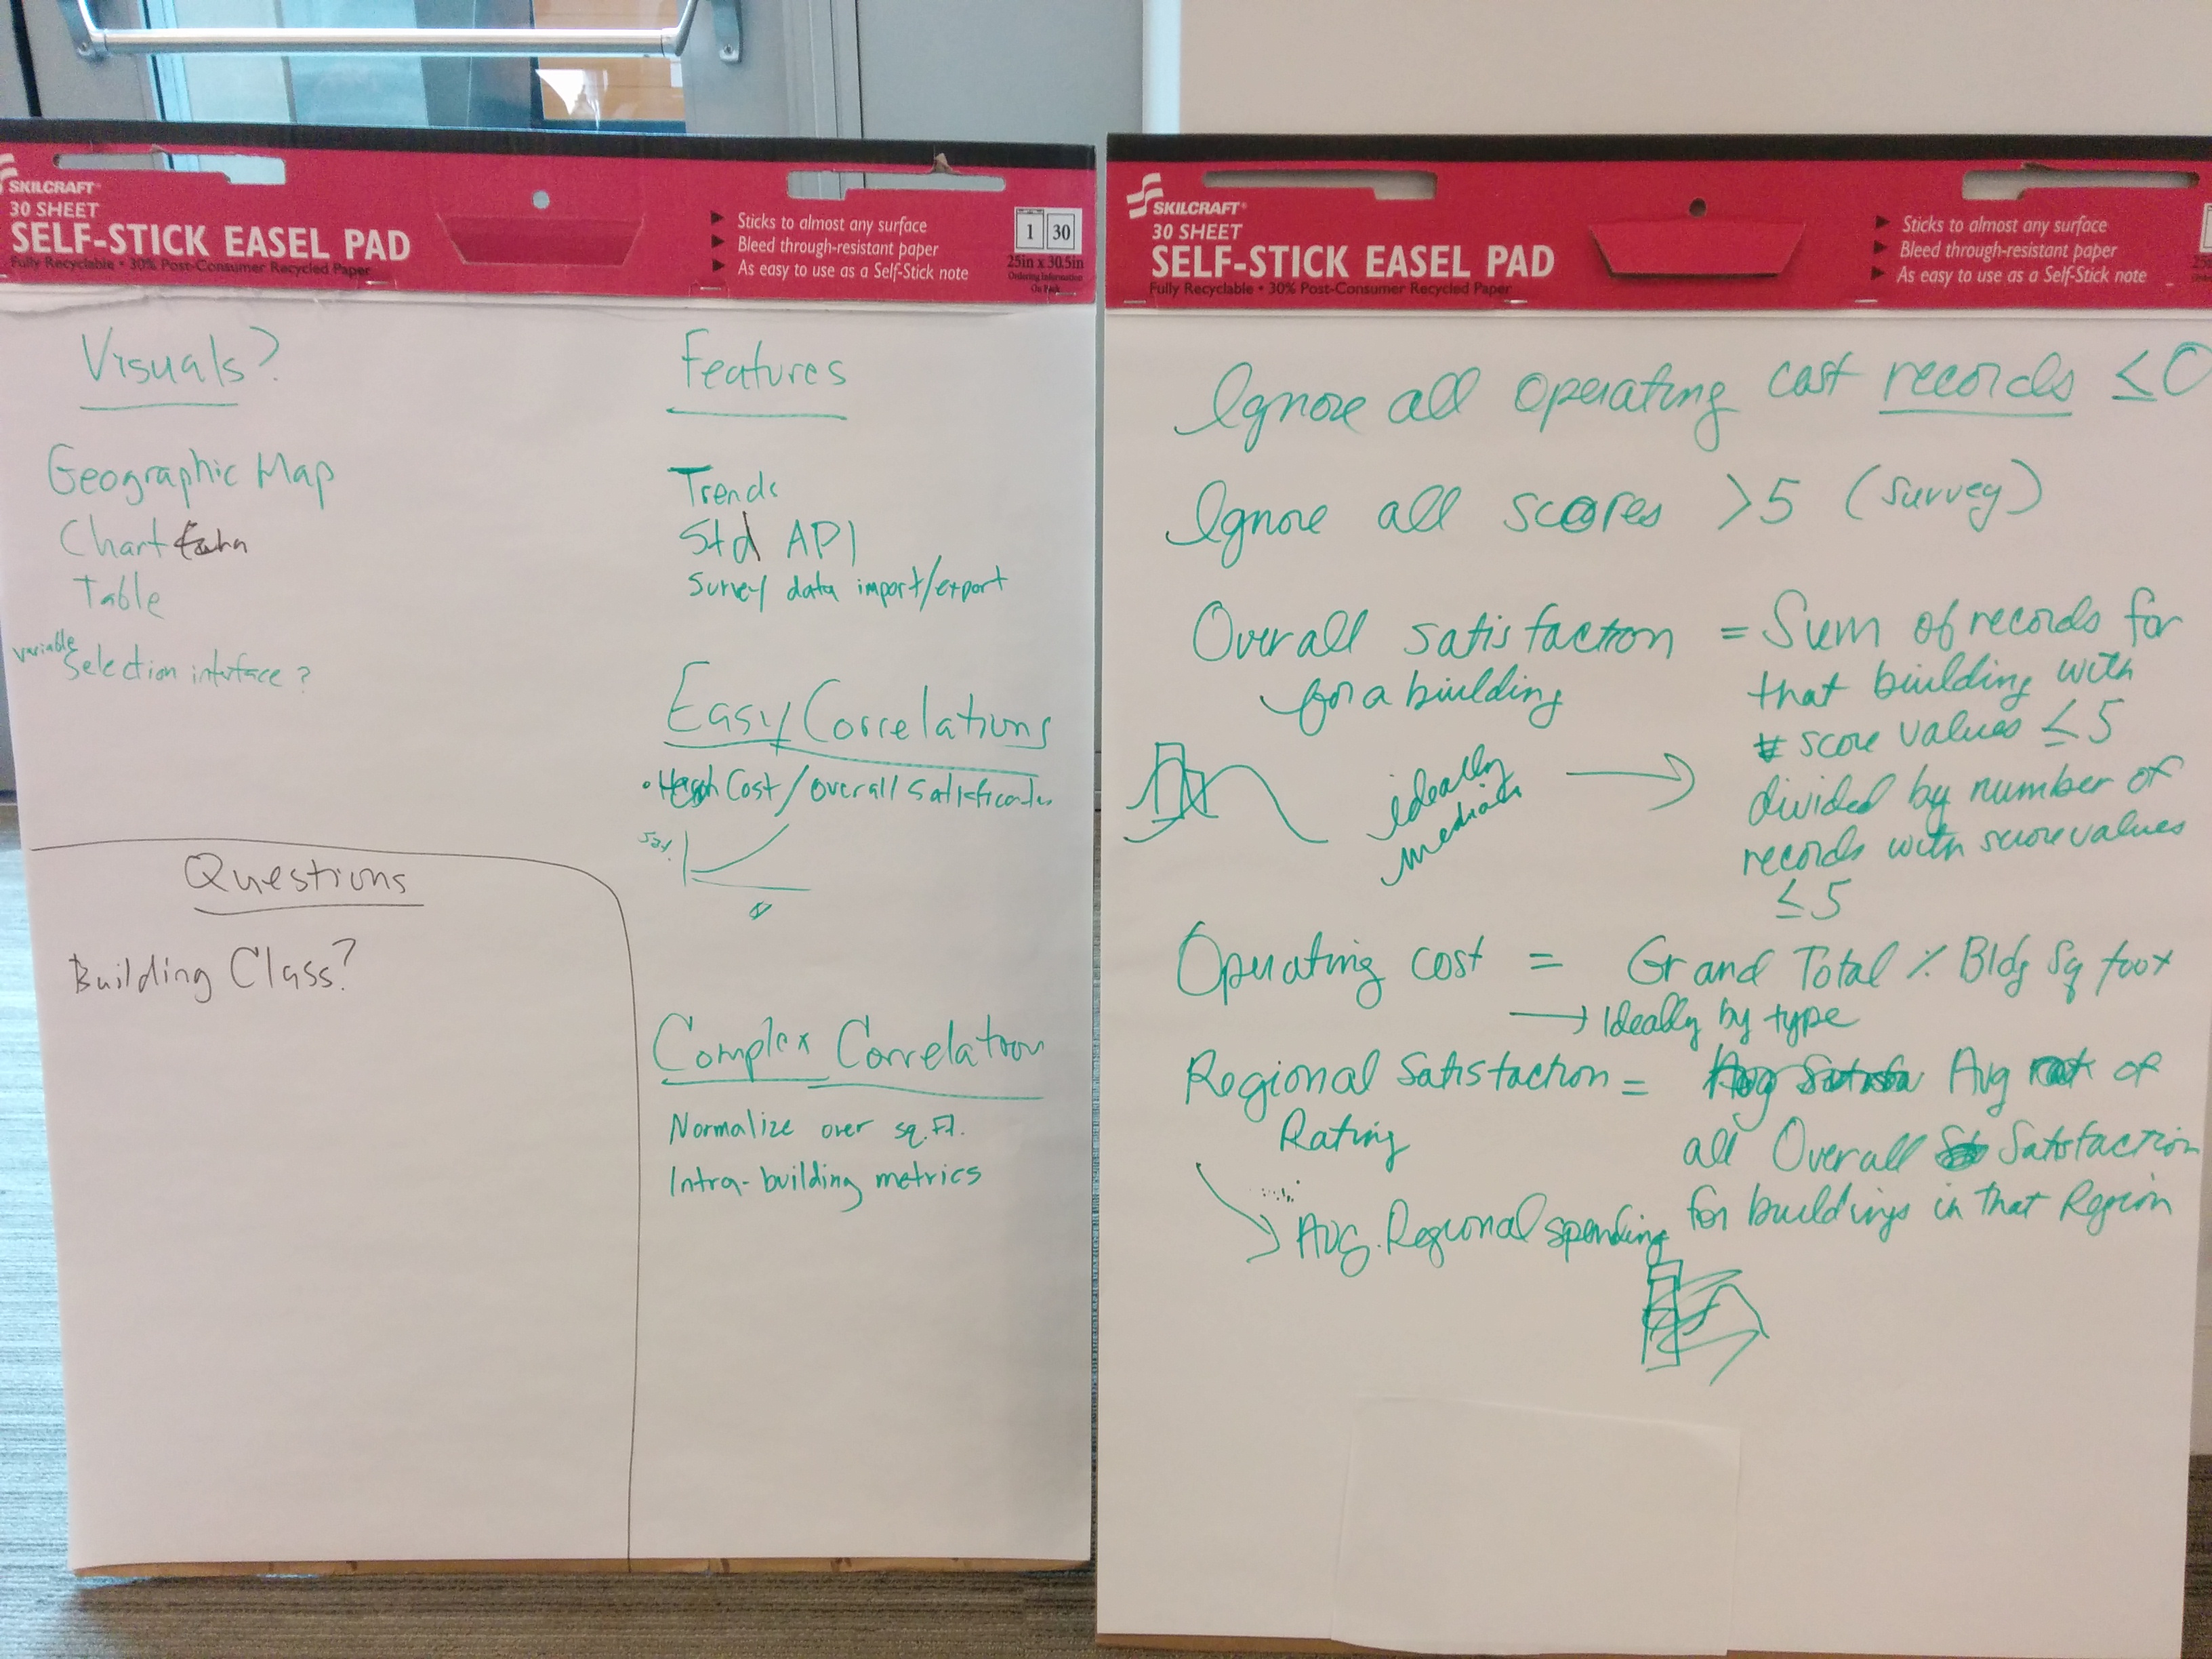 SKILCRAFT
30 SHEET
SELF-STICK EASEL PAD
Fully Recyclable • 30% Post-Consumer Recycled Paper
Sticks to almost any surface
Bleed through-resistant paper
As easy to use as a Self-Stick note
1 30
25in x 30.5in
Ordering Information
On Back
Visuals?
Geographic Map
Chart
Table
variable
Selection interface?
Questions
Building Class?
Features
Trends
Std API
Survey data import/export
Easy Correlations
• Cost/Overall
Sat.
$
Complex Correlation
Normalize over sq. Ft.
Intra-building metrics
SKILCRAFT
30 SHEET
SELF-STICK EASEL PAD
Fully Recyclable • 30% Post-Consumer Recycled Paper
Sticks to almost any surface
Bleed through-resistant paper
As easy to use as a Self-Stick note
Ignore all operating cost records ≤0
Ignore all scores >5 (survey)
Overall satisfaction = Sum of records for
for a building
that building with
score values ≤5
divided by number of
records with score values
≤5
ideally
median
Operating cost = Grand Total % Bldg Sq foot
→ Ideally by type
Regional Satisfaction = Avg of
Rating
all Overall Satisfaction
for buildings in that Region
Avg. Regional spending